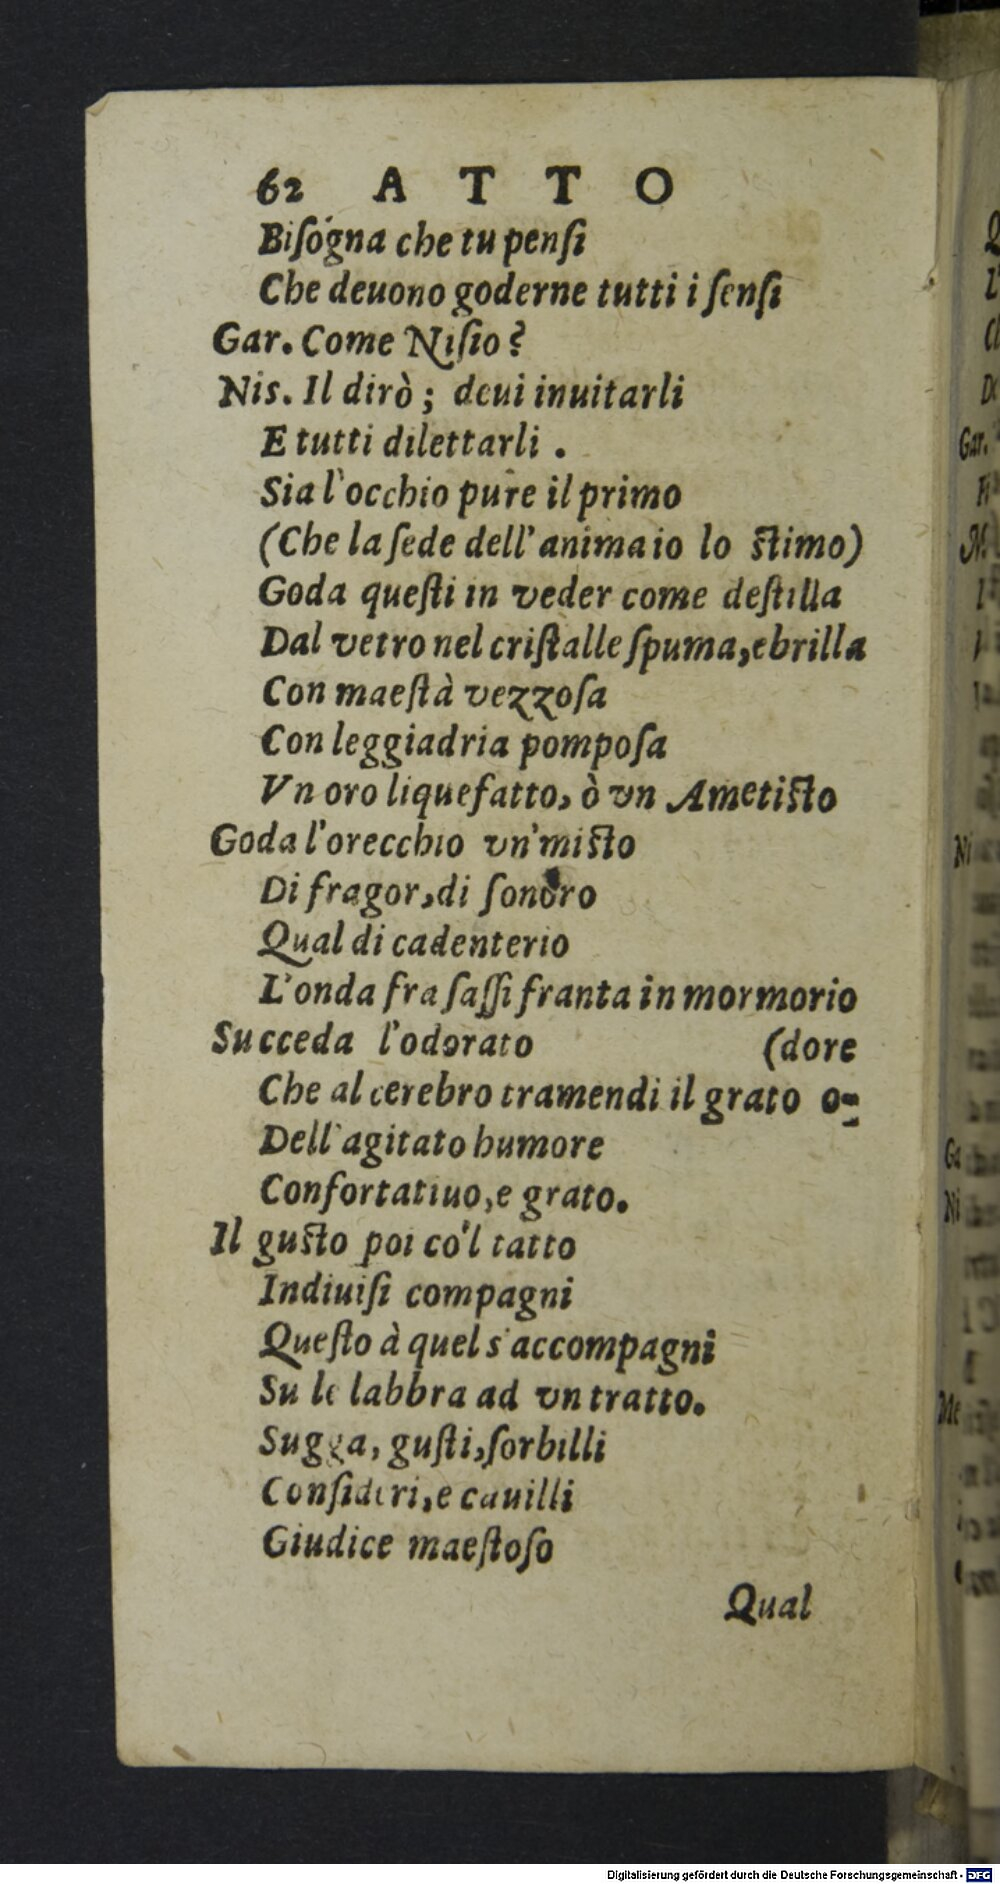 62 ATTO
Biſógna che tu penſi
Che deuono goderne tutti i ſenſi
Gar. Come Niſio?
Nis. Il dirò; deui inuitarli
E tutti dilettarli.
Sia l'occhio pure il primo
(Che la ſede dell'anima io lo ſtimo)
Goda queſti in veder come deſtilla
Dal vetro nel criſtalle ſpuma, e brilla
Con maeſtà vezzoſa
Con leggiadria pompoſa
Vn oro liquefatto, ò vn Ametiſto
Goda l'orecchio vn'miſto
Di fragor, di ſonoro
Qual di cadenterio
L'onda fra ſaſſi franta in mormorio
Succeda l'odorato (dore
Che al cerebro tramendi il grato o-
Dell'agitato humore
Confortatiuo, e grato.
Il guſto poi co'l tatto
Indiuiſi compagni
Queſto à quel s'accompagni
Su le labbra ad vn tratto.
Sugga, guſti, ſorbilli
Conſideri, e cauilli
Giudice maeſtoſo
Qual
Q
L'
Gar.
Ni
Ga
Ni
Me
Digitalisierung gefördert durch die Deutsche Forschungsgemeinschaft - DFG